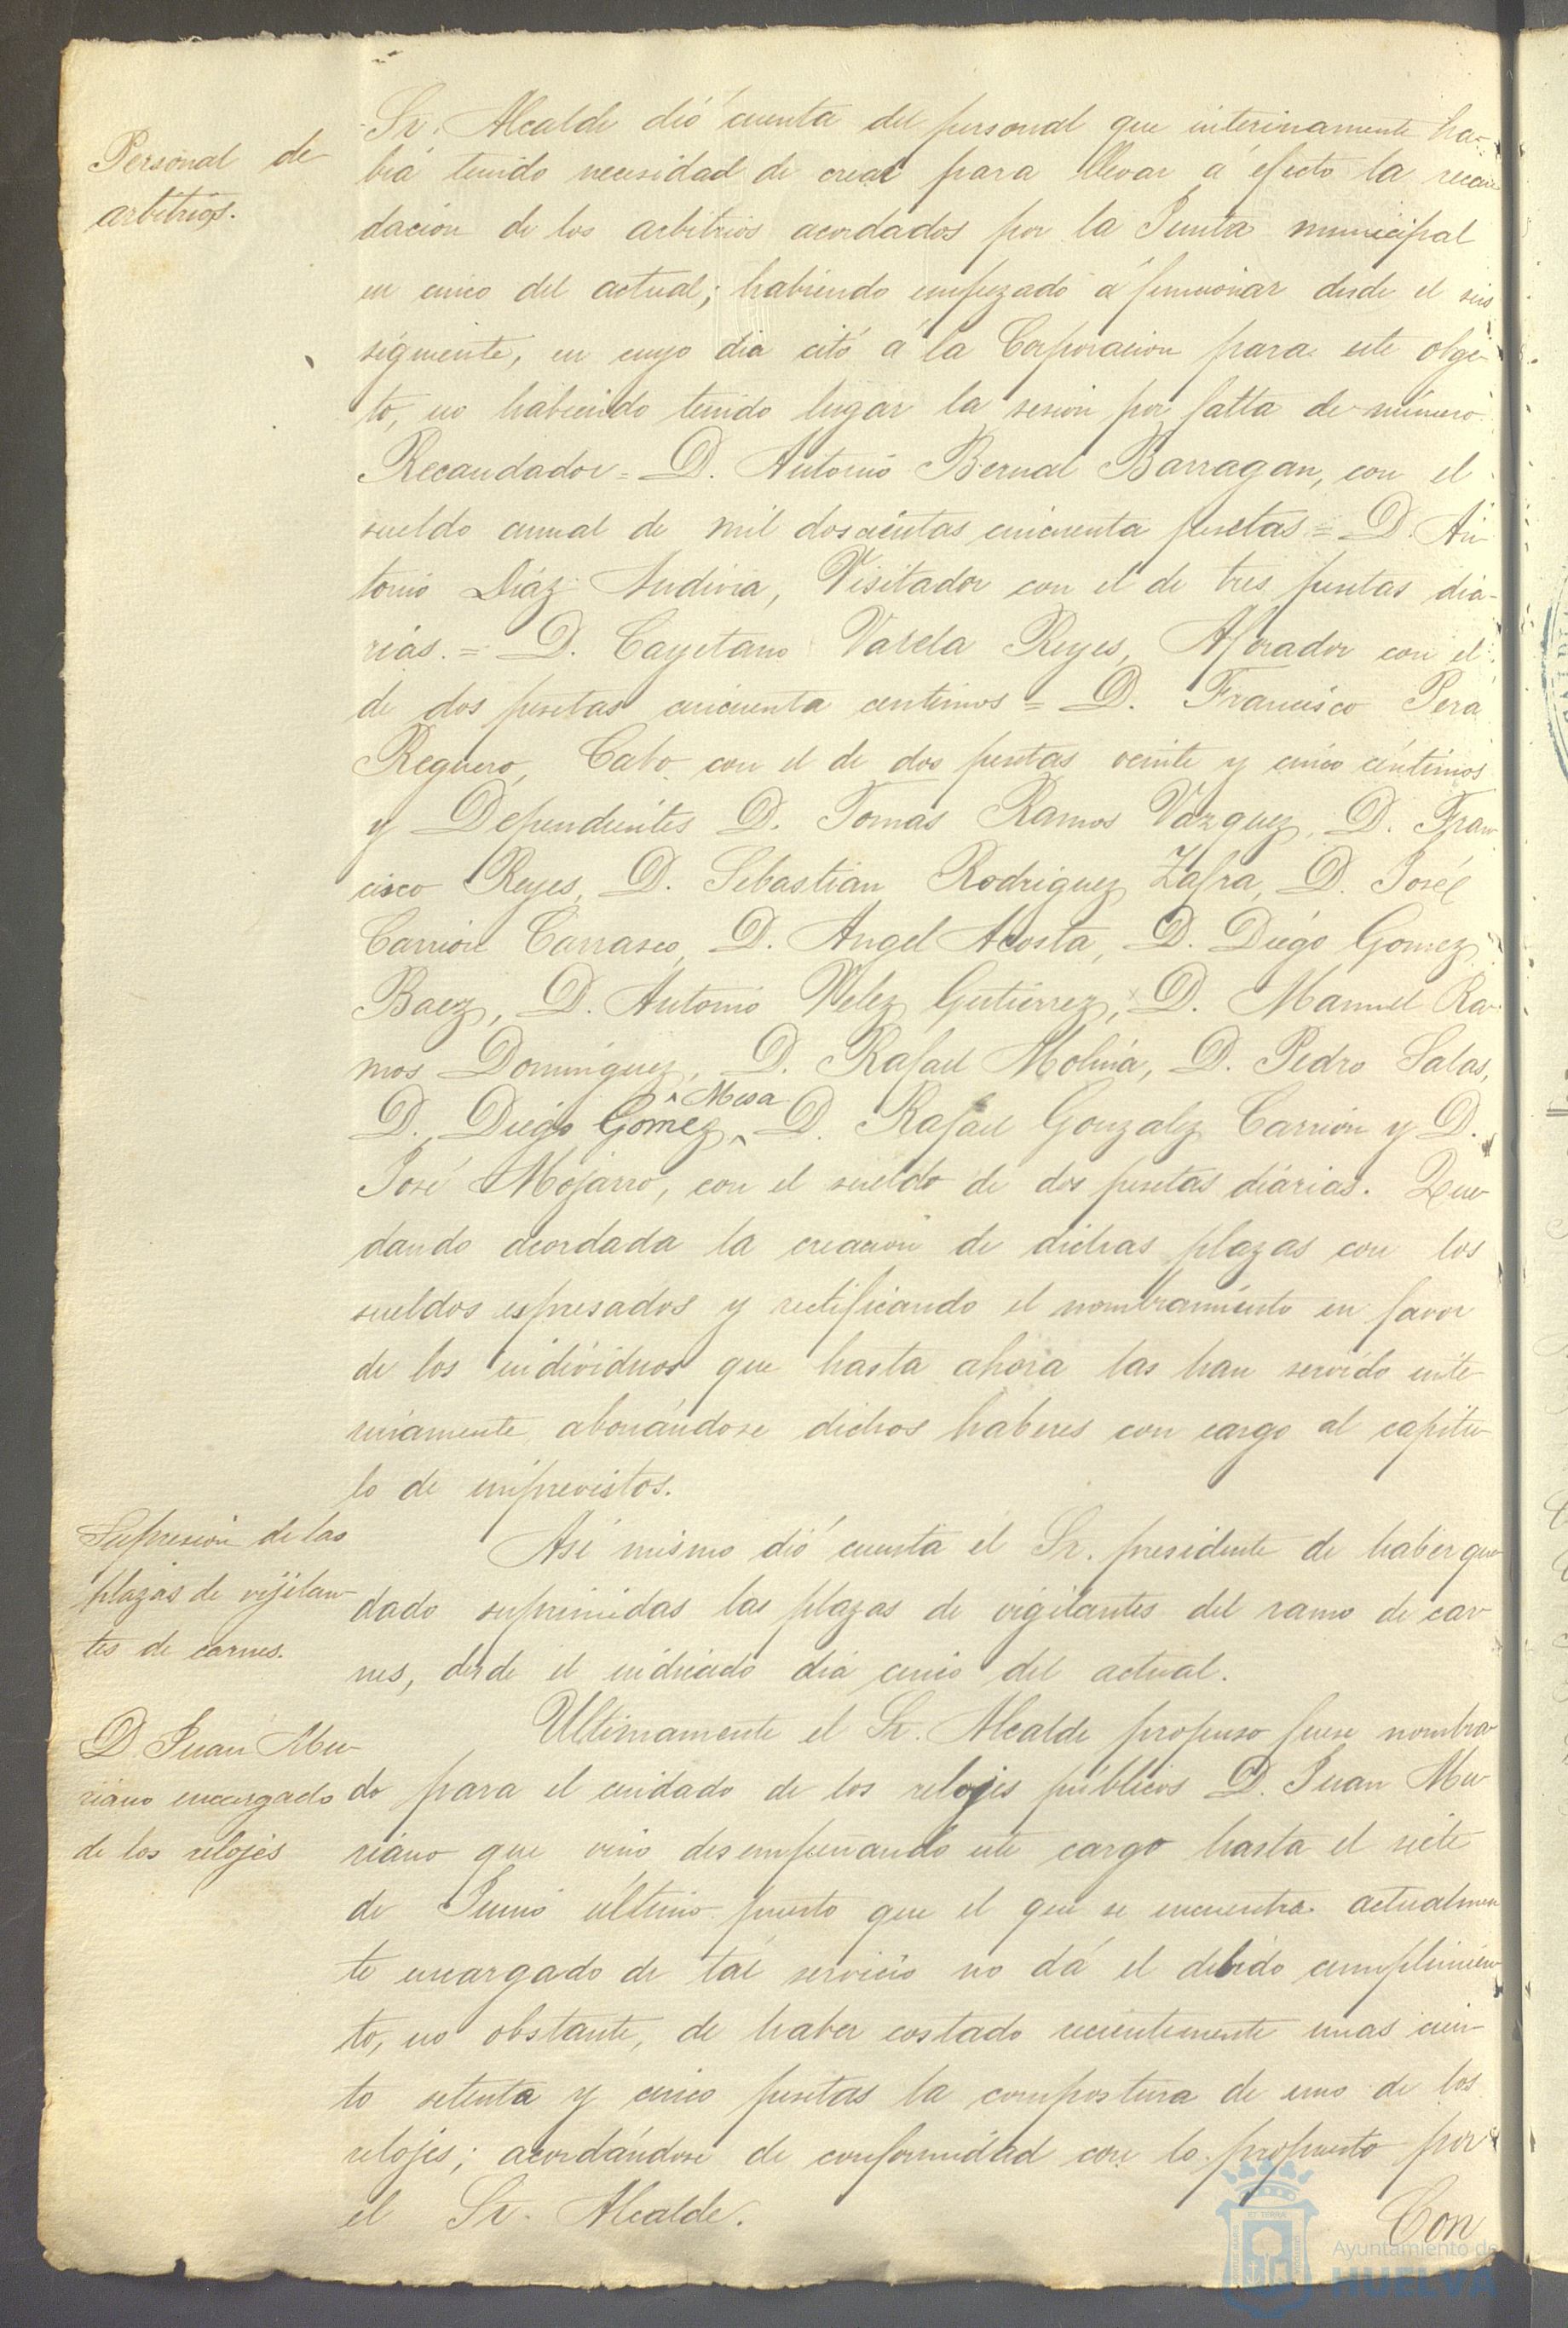 Personal de
arbitrios.
Sr. Alcalde dió cuenta del personal que interinamente ha-
bia tenido necesidad de crear para llevar á efecto la recau
dacion de los arbitrios acordados por la Junta municipal
en cinco del actual; habiendo empezado á funcionar desde el seis
siguiente, en cuyo dia citó á la Corporacion para este obge-
to, no habiendo tenido lugar la sesion por falta de número.
Recaudador = D. Antonio Bernal Barragan, con el
sueldo anual de mil doscientas cincuenta pesetas = D. An
tonio Diáz Andivia, Visitador con el de tres pesetas dia-
rias. = D. Cayetano Varela Reyes, Aforador con el
de dos pesetas cincuenta centimos = D. Francisco Pera
Reguero, Cabo con el de dos pesetas veinte y cinco céntimos
y Dependientes D. Tomas Ramos Vazquez, D. Fran
cisco Reyes, D. Sebastian Rodriguez Zafra, D. José
Carrion Carrasco, D. Angel Acosta, D. Diego Gomez
Baez, D. Antonio Velez Gutierrez, D. Manuel Ra-
mos Dominguez, D. Rafael Molina, D. Pedro Salas,
D. Diego Gomez ^ Mesa D. Rafael Gonzalez Carrion y D.
José Mojarro, con el sueldo de dos pesetas diarias. Que
dando acordada la creacion de dichas plazas con los
sueldos espresados y rectificando el nombramiento en favor
de los individuos que hasta ahora las han servido inte
rinamente abonándose dichos haberes con cargo al capitu
lo de imprevistos.
Supresion de las
plazas de vijilan-
tes de carnes.
Asi mismo dió cuenta el Sr. presidente de haber que
dado suprimidas las plazas de vigilantes del ramo de car
nes, desde el indicado dia cinco del actual.
D. Juan Mu-
riano encargado
de los relojes
Ultimamente el Sr. Alcalde propuso fuese nombra
do para el cuidado de los relojes públicos D. Juan Mu
riano que vino desempeñando este cargo hasta el siete
de Junio último puesto que el que se encuentra actualmen
te encargado de tal servicio no dá el debido cumplimien
to, no obstante, de haber costado recientemente unas cien-
to setenta y cinco pesetas la compostura de uno de los
relojes; acordándose de conformidad con lo propuesto por
el Sr. Alcalde.
Con
Ayuntamiento de
HUELVA